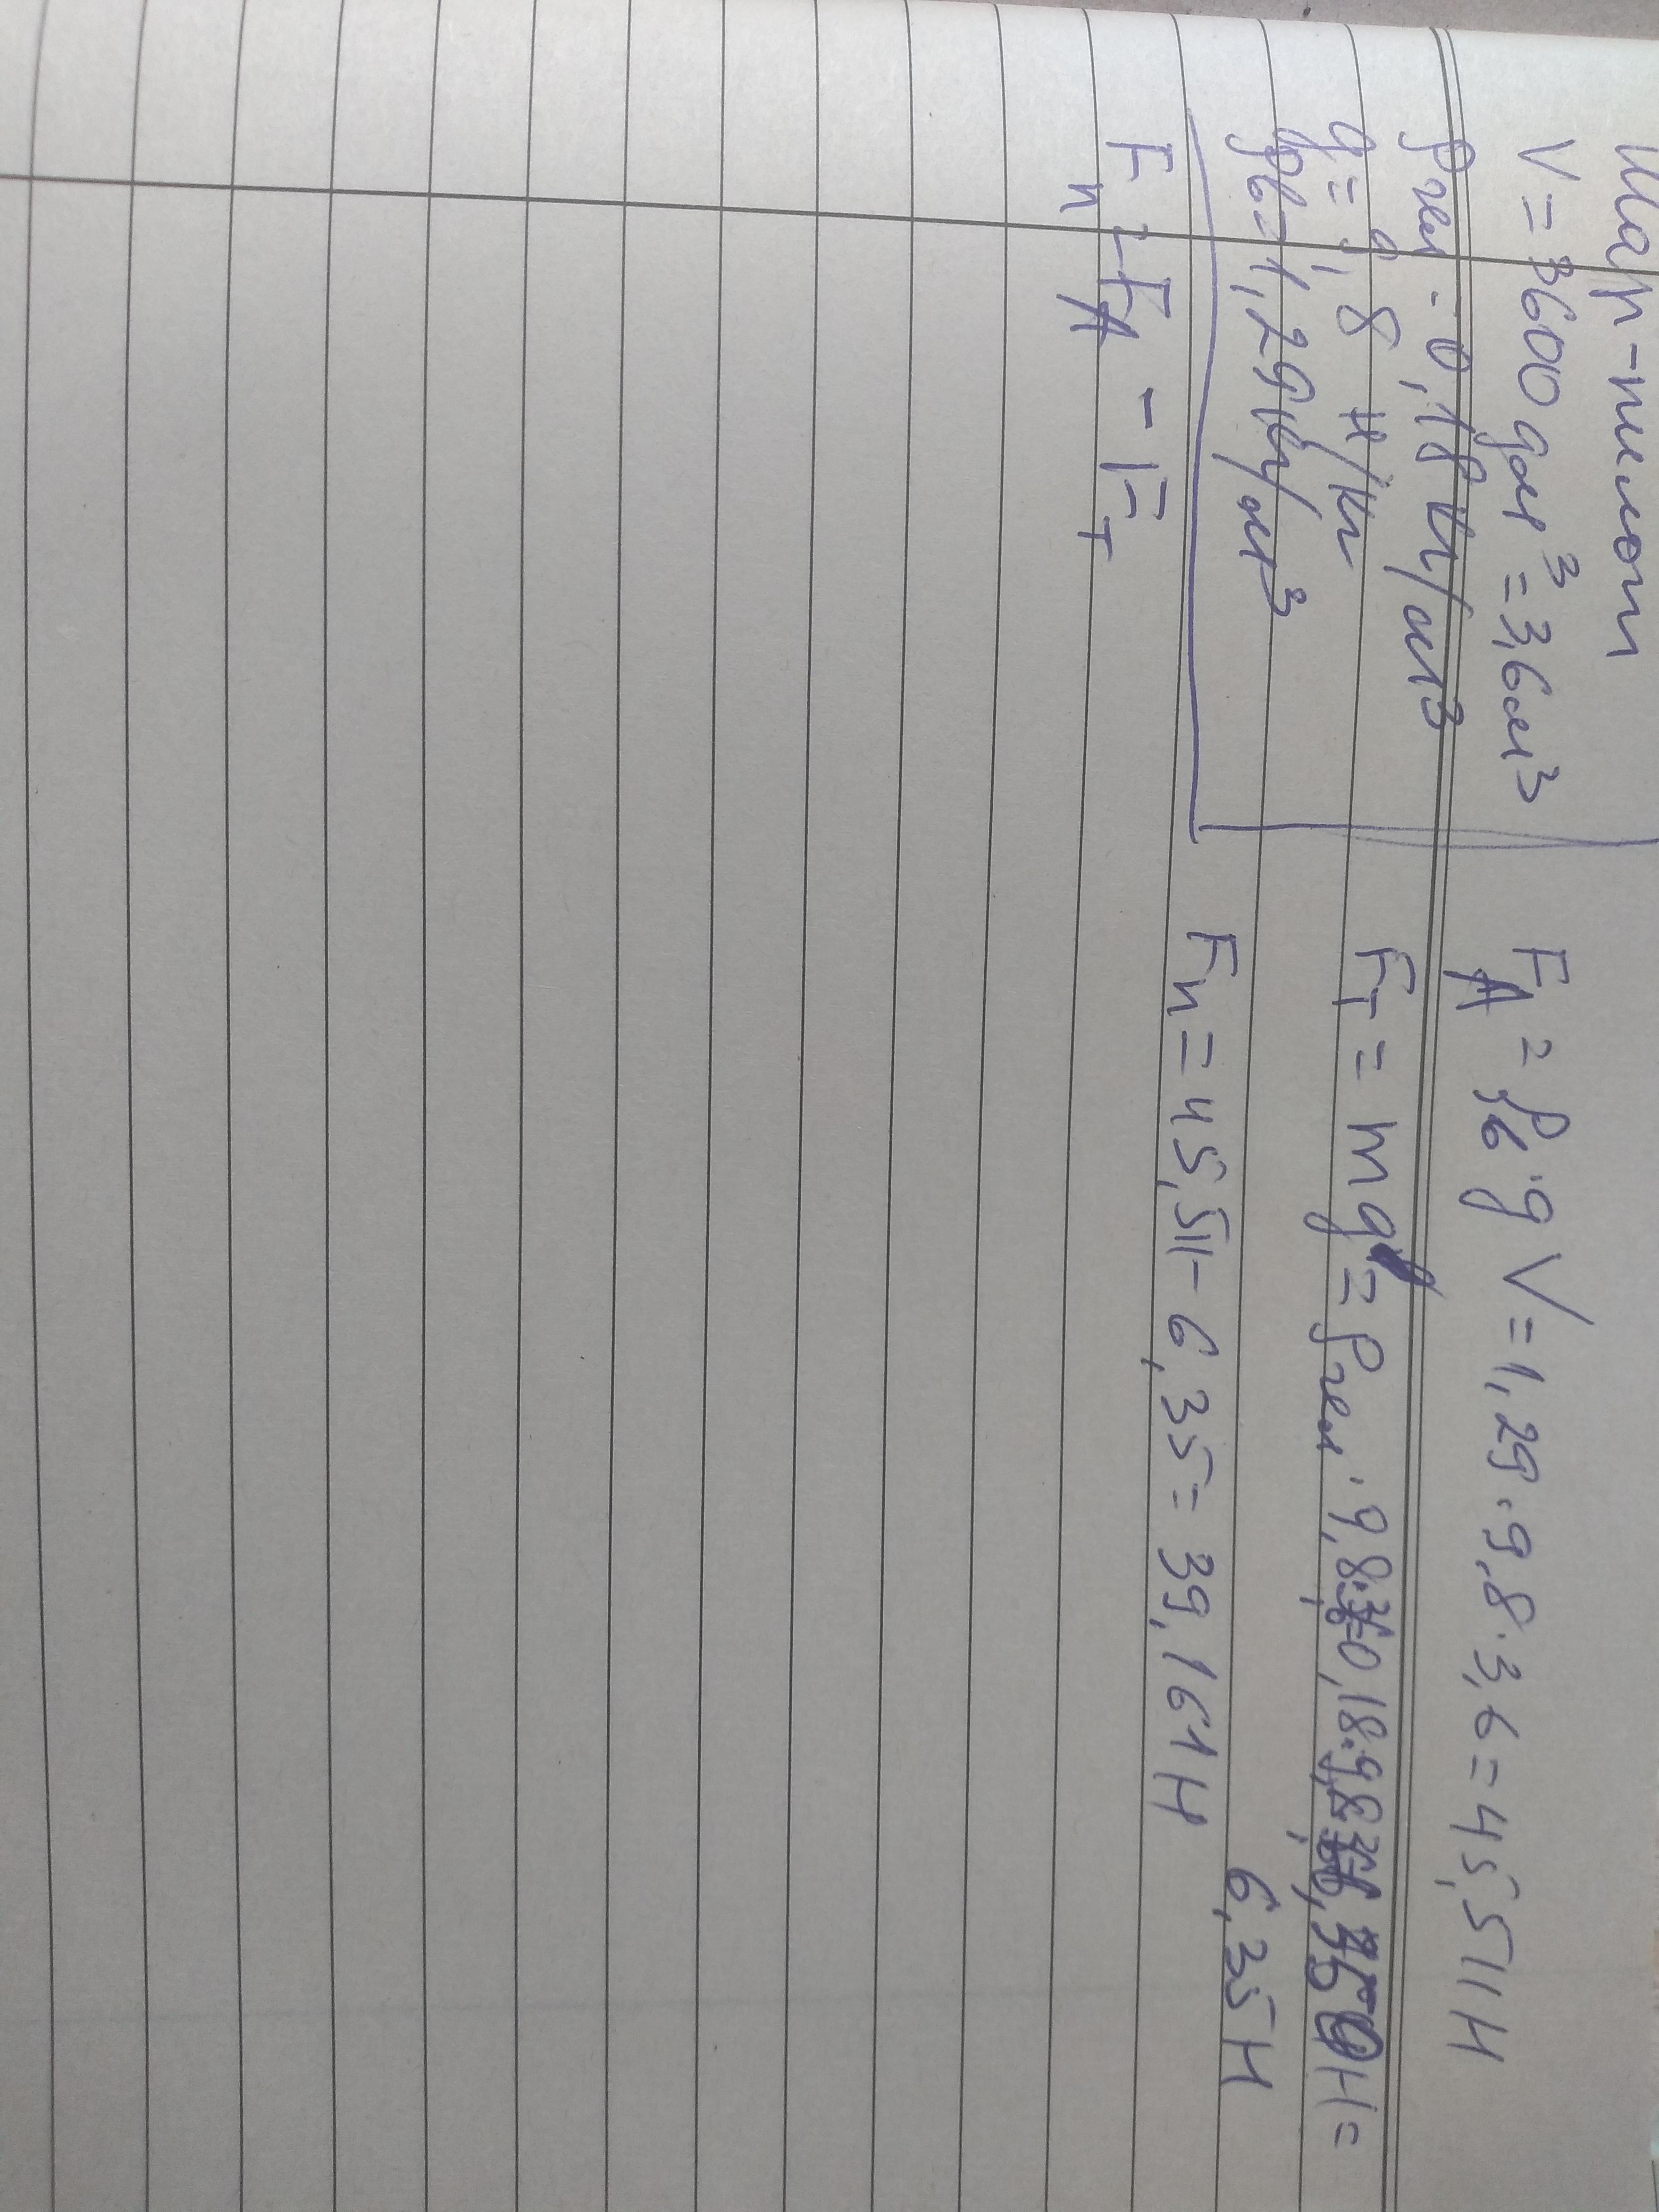 Шар-пилот
V = 3600 дм³ = 3,6 м³
ρгел - 0,18 кг/м³
g = 9,8 н/кг
ρв = 1,29 кг/м³
Fп = FA - Fт
FA = ρв·gV = 1,29·9,8·3,6 = 45,511 Н
Fт = mg = ρгел·9,8·3,6 0,18·9,8 Н =
6,35 Н
Fп = 45,511 - 6,35 = 39,161 Н